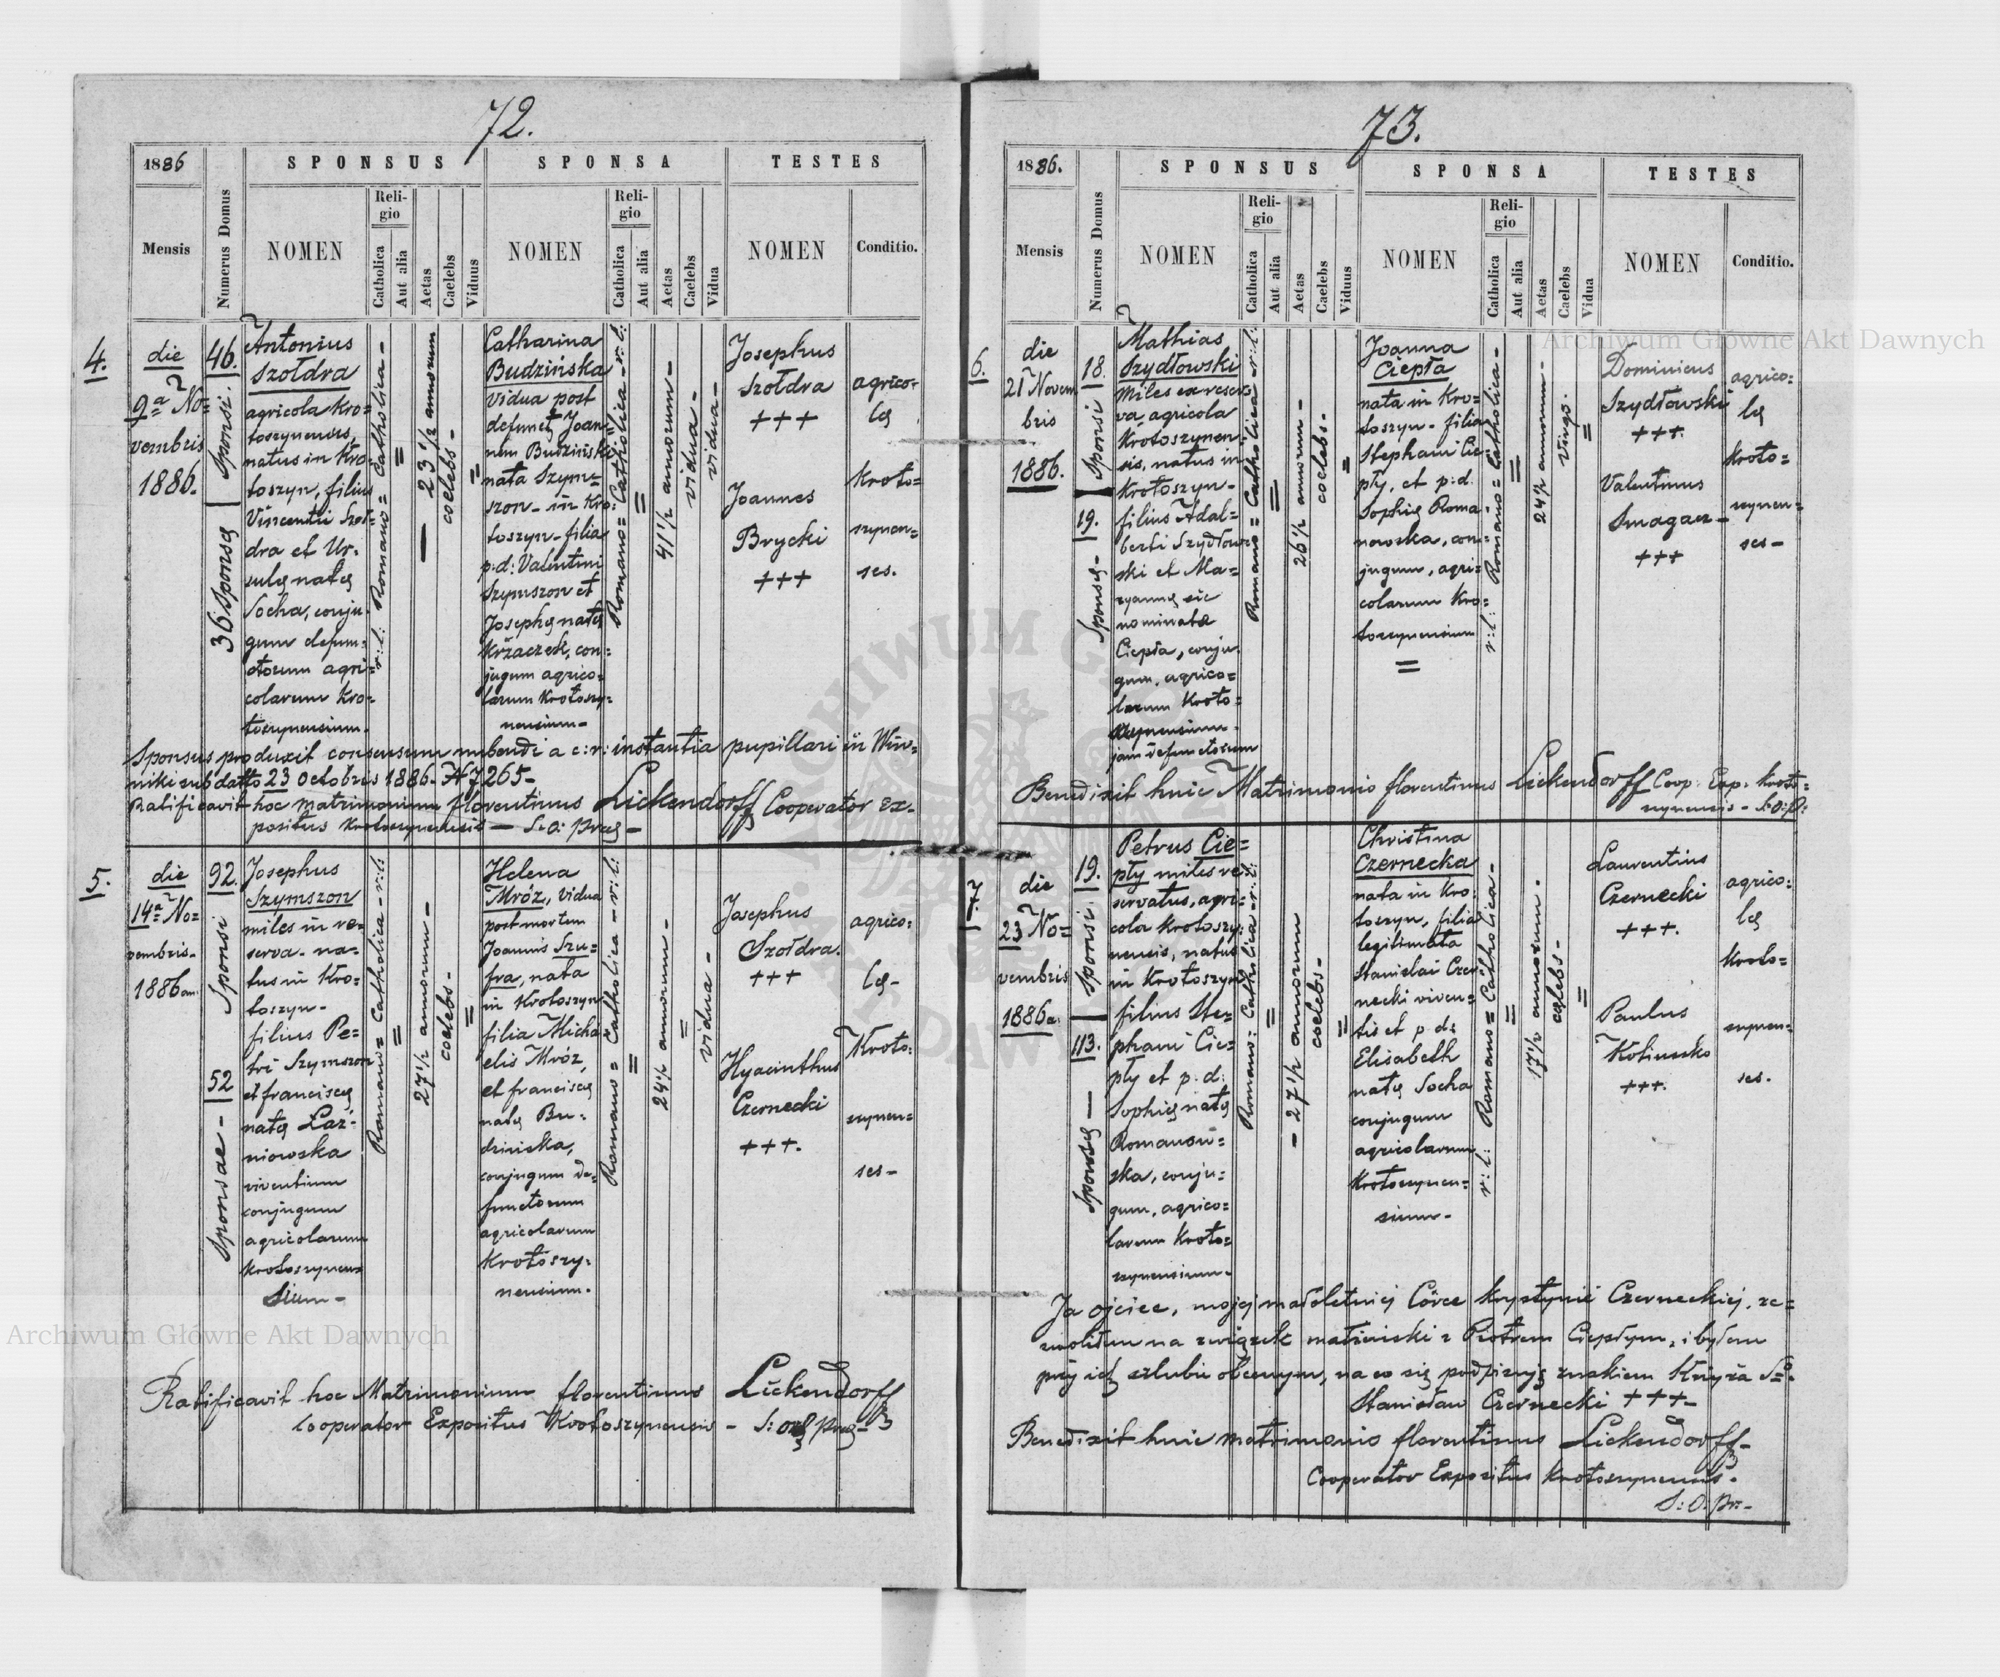 72.
1886
SPONSUS
SPONSA
TESTES
Mensis
Numerus Domus
NOMEN
Reli-
gio
Catholica
Aut alia
Aetas
Caelebs
Viduus
NOMEN
Reli-
gio
Catholica
Aut alia
Aetas
Caelebs
Vidua
NOMEN
Conditio.
4.
die
9a No=
vembris
1886.
46. Sponsi.
36 Sponsę
Antonius
Szołdra
agricola Kro=
toszynensis,
natus in Kro=
toszyn, filius
Vincentii Szoł=
dra et Ur=
sulę natę
Socha, conju
gum defun=
ctorum agri=
colarum Kro=
toszynensium.
Romano= Catholica –
r: l:
23 1/2 annorum
coelebs –
Catharina
Budzińska
vidua post
defunct Joan=
nem Budziński
nata Szym=
szon – in Kro=
toszyn – filia
p: d: Valentini
Szymszon et
Josephę natę
Krzaczek, con=
jugum agrico=
larum Krotoszy=
nensium –
Romano= Catholica – r: l:
41 1/2 annorum –
vidua –
vidua –
Josephus
Szołdra
+++
Joannes
Brycki
+++
agrico=
lę
Kroto=
szynen=
ses.
Sponsus produxit consensum nubendi a c: r: instantia pupillari in Win=
niki sub datto 23 Octobris 1886. N 7,265 –
Ratificavit hoc matrimonium Florentinus Lickendorff Cooperator ex=
positus Krotoszynensis – S: O: Pręę –
5.
die
14a No=
vembris –
1886
92. Sponsi
52 Sponsae –
Josephus
Szymszon
miles in re=
serva – na=
tus in Kro=
toszyn –
filius Pe=
tri Szymszon
et Franciscę
natę Łaź=
niowska
viventium
conjugum
agricolarum
Krotoszynen=
sium –
Romano= Catholica – r: l:
27 1/2 annorum –
coelebs –
Helena
Mróz, vidua
post mortem
Joannis Szu=
fra, nata
in Krotoszyn
filia Micha
elis Mróz,
et Franciscę
natę Bu=
dzińska,
conjugum de=
functorum
agricolarum
Krotoszy=
nensium.
Romano= Catholica – r: l:
24 1/2 annorum –
vidua –
Josephus
Szołdra.
+++
Hyacinthus
Czernecki
+++.
agrico=
lę –
Kroto=
szynen=
ses –
Ratificavit hoc Matrimonium Florentinus Lickendorff
Cooperator Expositus Krotoszynensis –
73.
1886.
SPONSUS
SPONSA
TESTES
Mensis
Numerus Domus
NOMEN
Reli-
gio
Catholica
Aut alia
Aetas
Caelebs
Viduus
NOMEN
Reli-
gio
Catholica
Aut alia
Aetas
Caelebs
Vidua
NOMEN
Conditio.
6.
die
21 Novem
bris
1886.
18. Sponsi
19. Sponsę –
Mathias
Szydłowski
miles ex reser=
va, agricola
Krotoszynen=
sis, natus in
Krotoszyn –
filius Adal=
berti Szydłow=
ski et Ma=
ryannę sic
nominatae
Ciepła, conju
gum, agrico=
larum Kroto=
szynensium –
jam defunctorum
Romano= Catholica – r: l:
26 1/2 annorum –
coelebs.
Joanna
Ciepła
nata in Kro=
toszyn – filia
Stephani Cie
pły, et p: d.
Sophię Roma
nowska, con=
jugum, agri=
colarum Kro=
toszynensium
Romano= Catholica –
r: l:
24 1/2 annorum –
virgo.
Dominicus
Szydłowski
+++.
Valentinus
Smagacz –
+++
agrico=
lę
Kroto=
szynen=
ses –
Benedixit huic Matrimonio Florentinus Lickendorff Coop: Exp: Kroto=
szynensis – S: O: P:
7.
die
23 No=
vembris
1886
19. Sponsi
113. Sponsę –
Petrus Cie=
pły miles re=
servatus, agri=
cola Krotoszy=
nensis, natus
in Krotoszyn
filius Ste=
phani Cie=
pły et p: d:
Sophię natę
Romanow=
ska, conju=
gum, agrico=
larum Kroto=
szynensium –
Romano= Catholica – r: l:
– 27 1/2 annorum
coelebs –
Christina
Czernecka
nata in Kro=
toszyn, filia
legitimata
Stanislai Czer
necki viven=
tis et p: d:
Elisabeth
natę Socha
conjugum
agricolarum
Krotoszynen=
sium –
Romano= Catholica –
r: l:
17 1/2 annorum –
cęlebs –
Laurentius
Czernecki
+++.
Paulus
+++.
agrico=
lę
Kroto=
szynen=
ses.
Ja ojciec, mojej małoletniej Córce Krystynie Czerneckiej, ze=
zwoliłem na związek małżeński z Piotrem Ciepłym, i byłem
przy ich szlubie obecnym, na co się podpisuję znakiem Krzyża Sgo.
Stanisław Czernecki +++ –
Benedixit huic matrimonio Florentinus Lickendorff –
Cooperator Expositus Krotoszynensis.
S: O: Pr: –
Archiwum Główne Akt Dawnych
Archiwum Główne Akt Dawnych